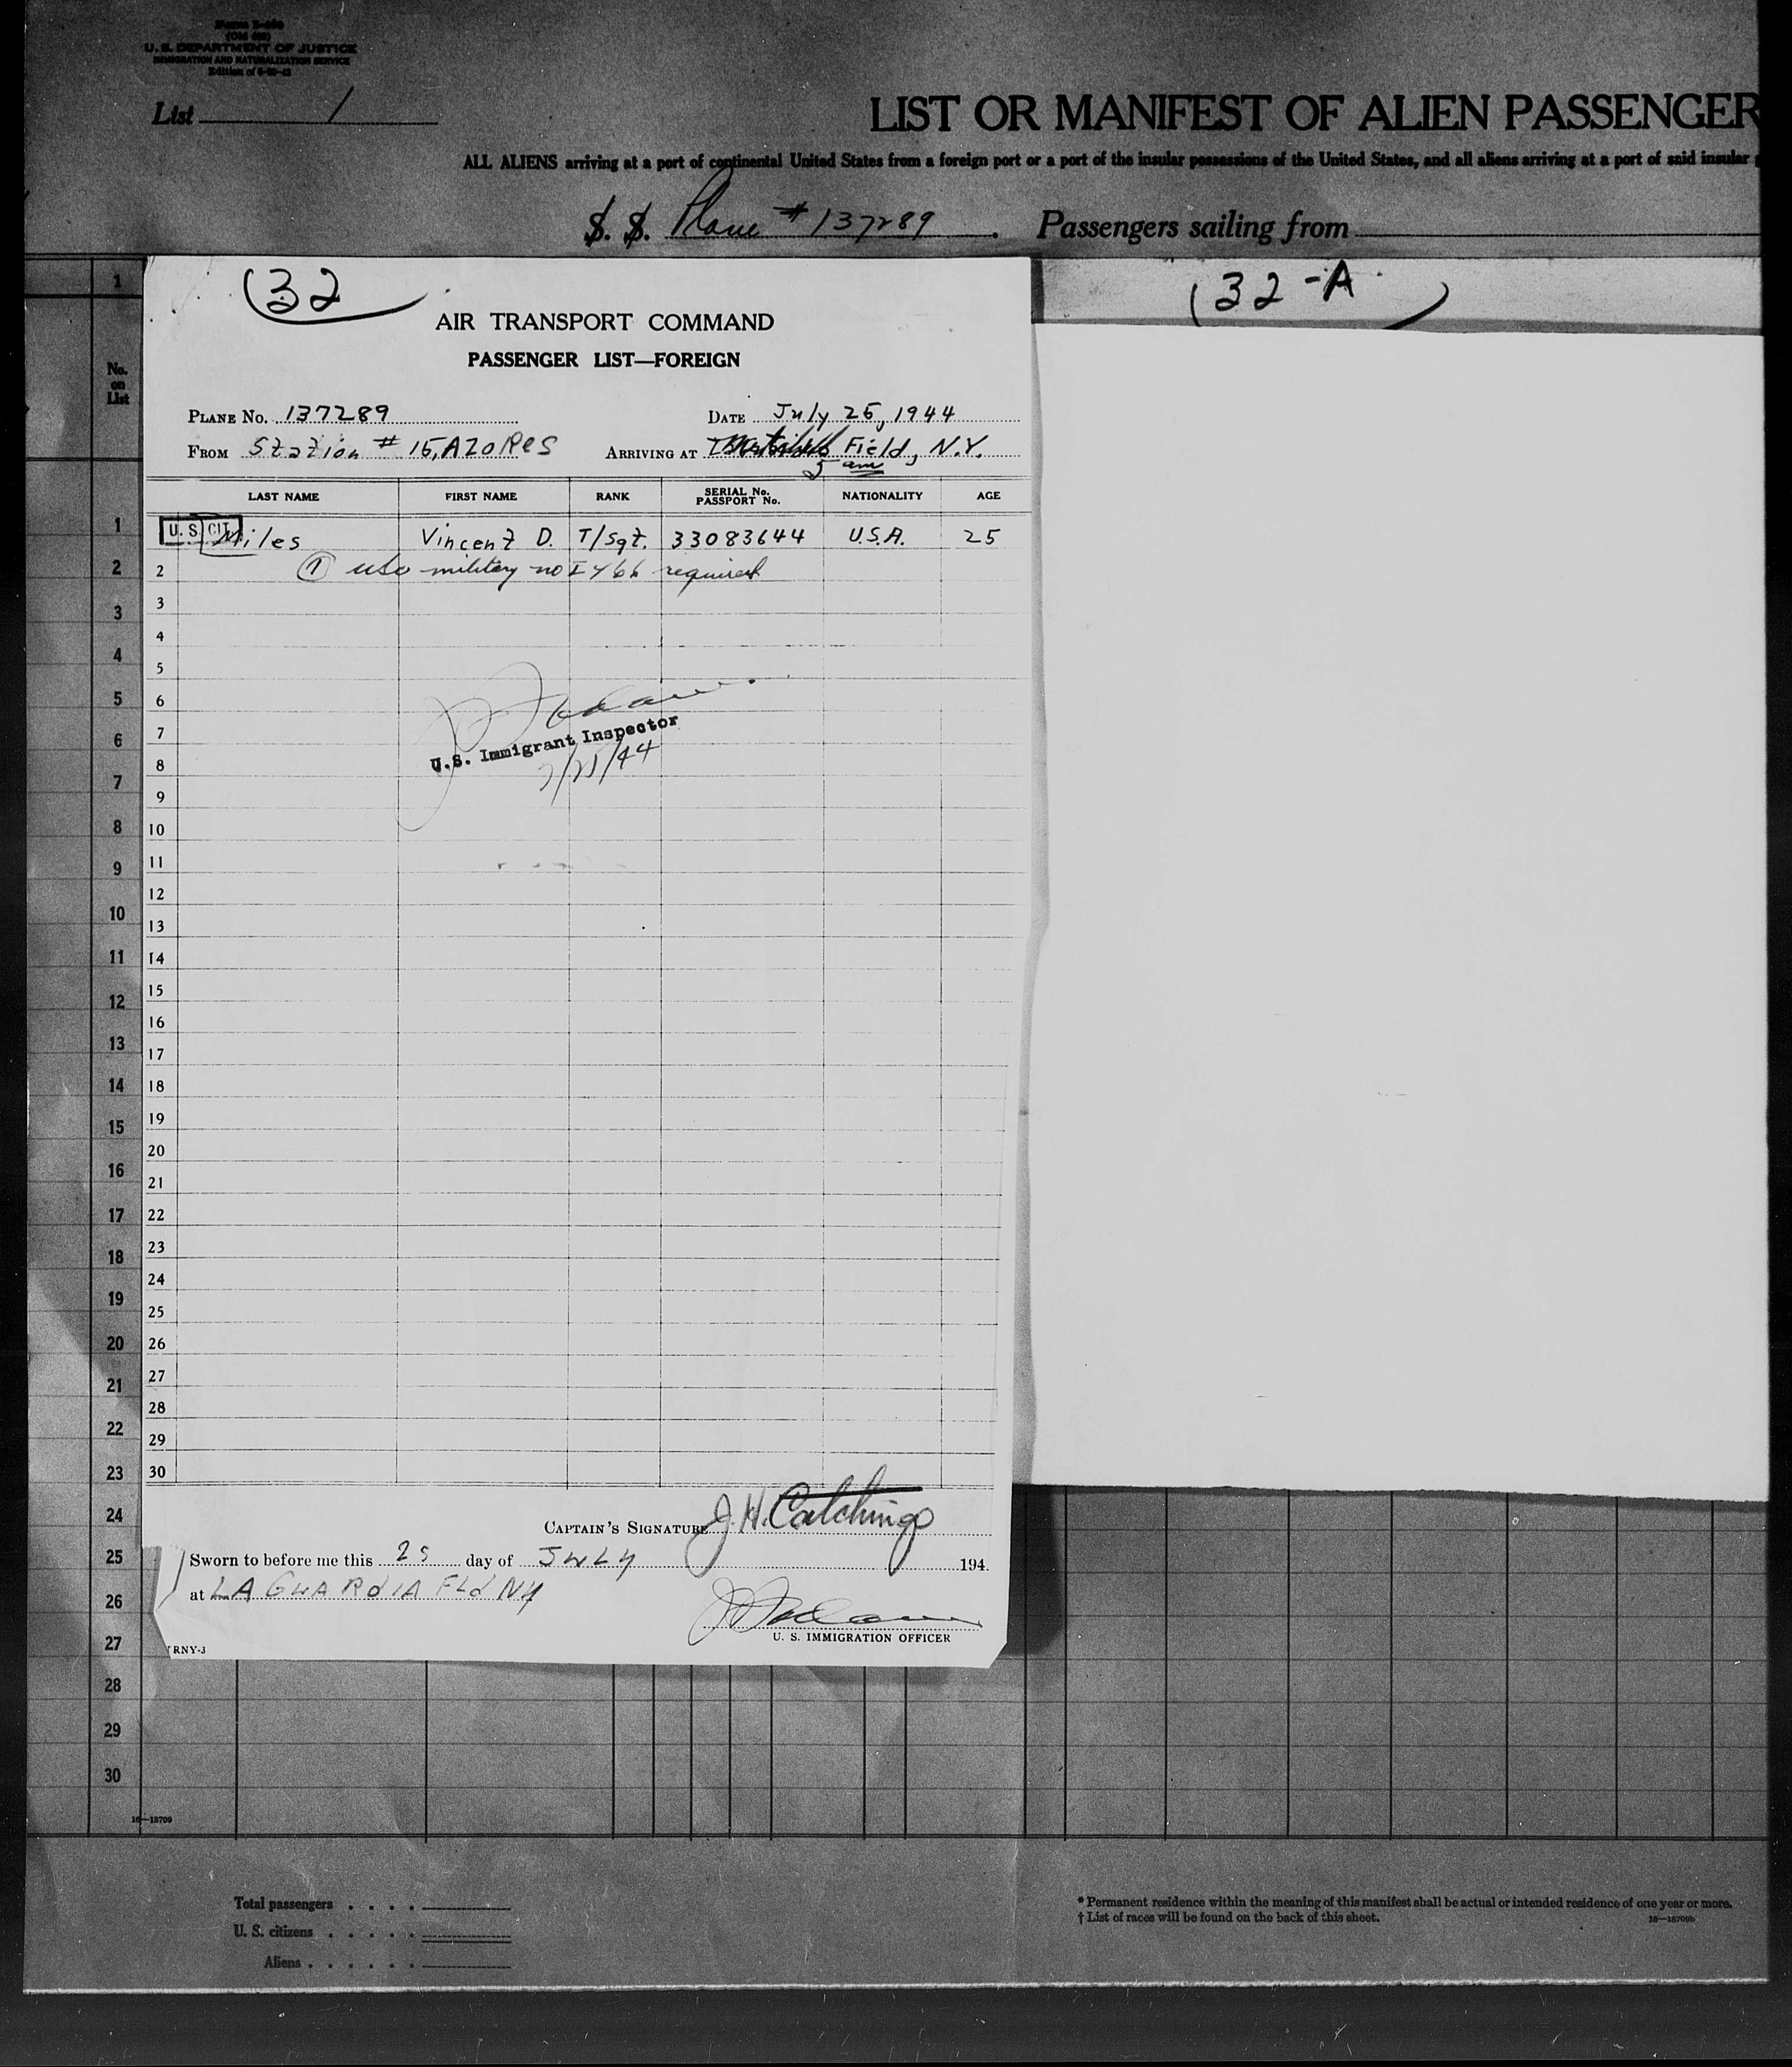 Form I-466
(Old 500)
U. S. DEPARTMENT OF JUSTICE
IMMIGRATION AND NATURALIZATION SERVICE
Edition of
List 1
LIST OR MANIFEST OF ALIEN PASSENGER
ALL ALIENS arriving at a port of continental United States from a foreign port or a port of the insular possessions of the United States, and all aliens arriving at a port of said insular
S. S. Plane # 137289. Passengers sailing from
(32
(32-A)
AIR TRANSPORT COMMAND
PASSENGER LIST—FOREIGN
PLANE No. 137289 DATE July 25, 1944
FROM Station # 15, AZORES ARRIVING AT Field, N.Y.
5 am
No. on List
LAST NAME FIRST NAME RANK SERIAL No. PASSPORT No. NATIONALITY AGE
U. S. CIT. Miles Vincent D. T/Sgt. 33083644 U.S.A. 25
1
2
3
4
5
6
7
8
9
10
11
12
13
14
15
16
17
18
19
20
21
22
23
24
25
26
27
28
29
30
2 (1) military no I 466 required
3
4
5
6
7
U.S. Immigrant Inspector
8
7/25/44
9
10
11
12
13
14
15
16
17
18
19
20
21
22
23
24
25
26
27
28
29
30
CAPTAIN'S SIGNATURE J. H. Catchings
Sworn to before me this 25 day of JULY 194
at LA GUARDIA FLD NY
U. S. IMMIGRATION OFFICER
RNY-3
16—18709
Total passengers . . . .
U. S. citizens . . . . .
Aliens . . . . . .
* Permanent residence within the meaning of this manifest shall be actual or intended residence of one year or more.
† List of races will be found on the back of this sheet. 16—18709b